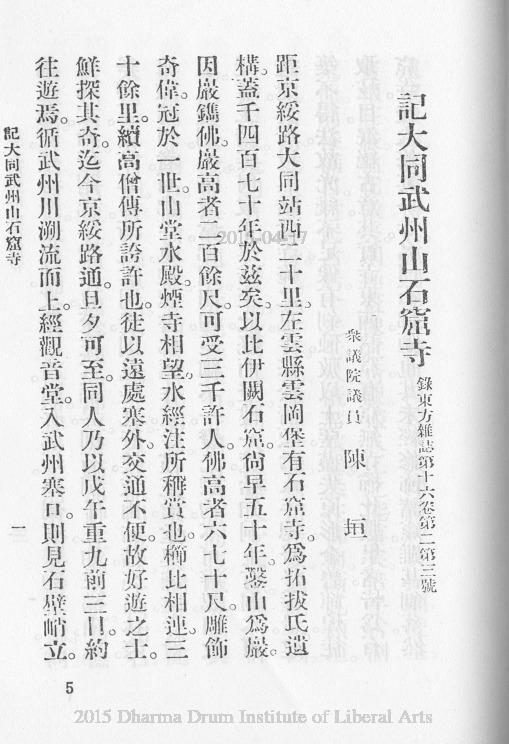 記大同武州山石窟寺 錄東方雜誌第十六卷第二第三號
衆議院議員 陳垣
距京綏路大同站西二十里。左雲縣雲岡堡有石窟寺。爲拓拔氏遺
構。蓋千四百七十年於茲矣。以比伊闕石窟。尙早五十年。鑿山爲巖。
因巖鐫佛。巖高者二百餘尺。可受三千許人。佛高者六七十尺。雕飾
奇偉。冠於一世。山堂水殿。煙寺相望。水經注所稱賞也。櫛比相連三
十餘里。續高僧傳所誇許也。徒以遠處塞外。交通不便。故好遊之士。
鮮探其奇。迄今京綏路通。旦夕可至。同人乃以戊午重九前三日。約
往遊焉。循武州川溯流而上。經觀音堂。入武州塞口。則見石壁峭立。
記大同武州山石窟寺
一
5
2015-04-17
2015 Dharma Drum Institute of Liberal Arts